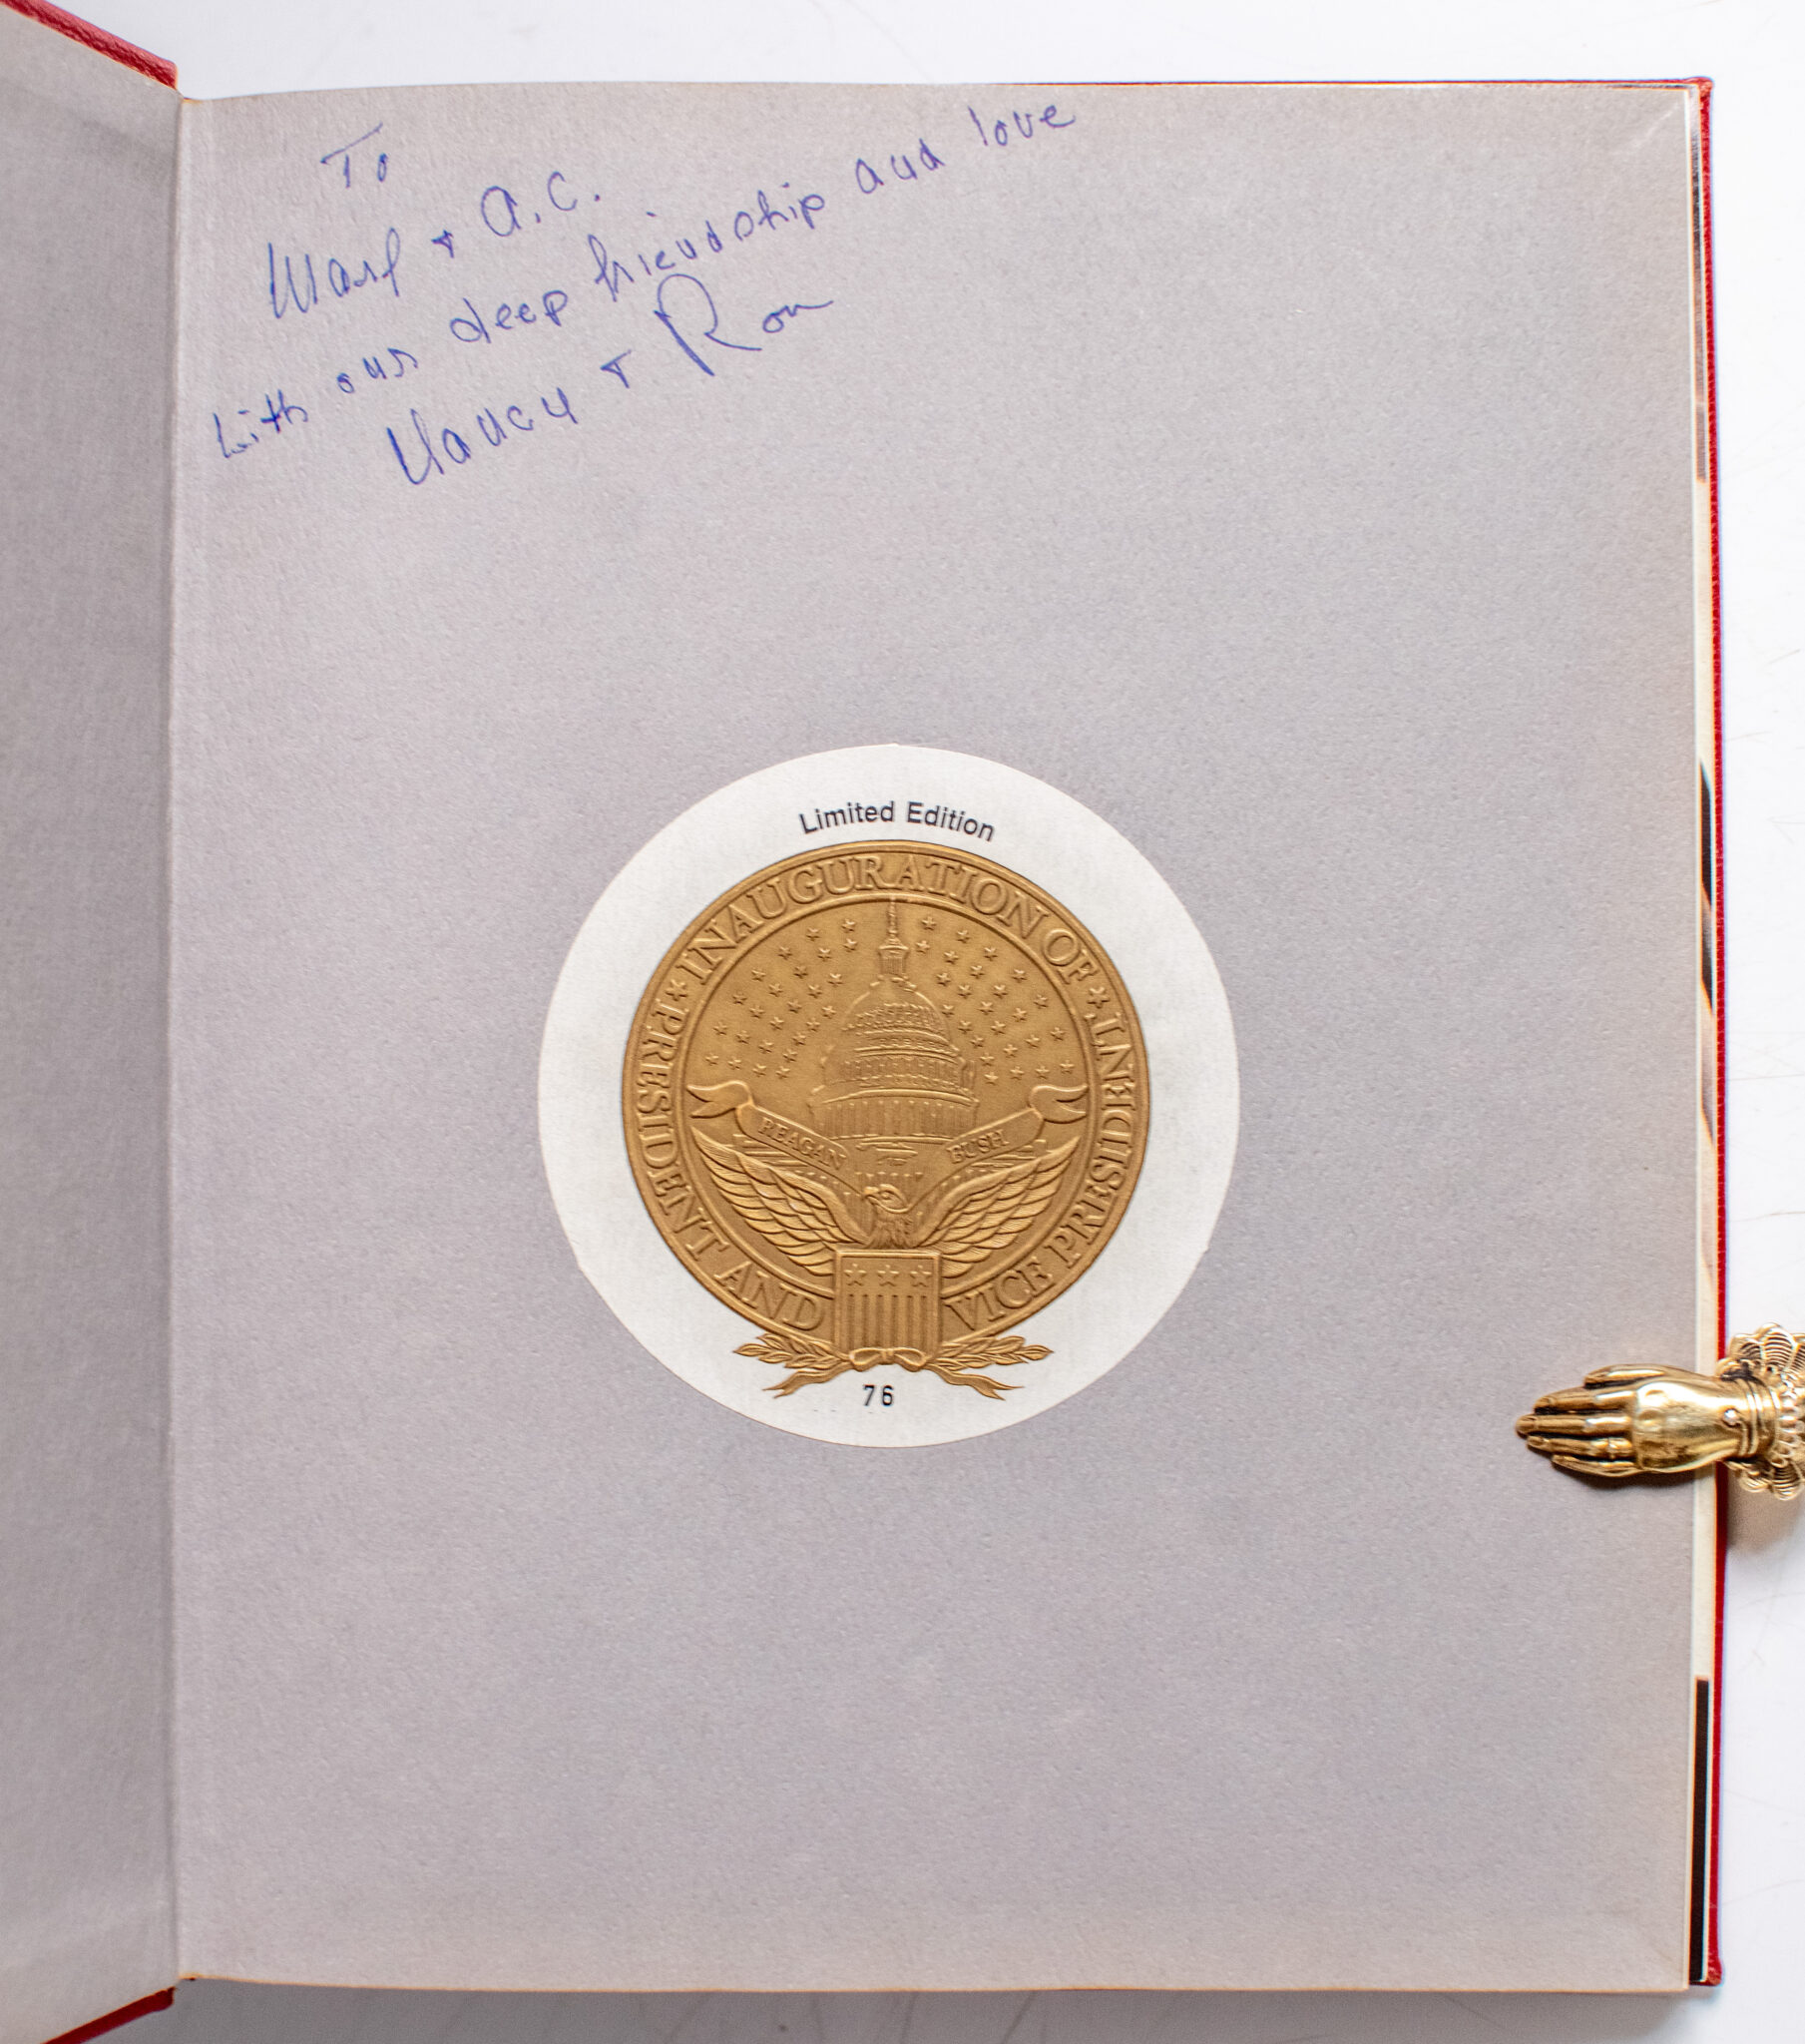 To
Marj + A.C.
With our deep friendship and love
Nancy + Ron
Limited Edition
★ INAUGURATION OF ★
PRESIDENT AND VICE PRESIDENT
REAGAN BUSH
76